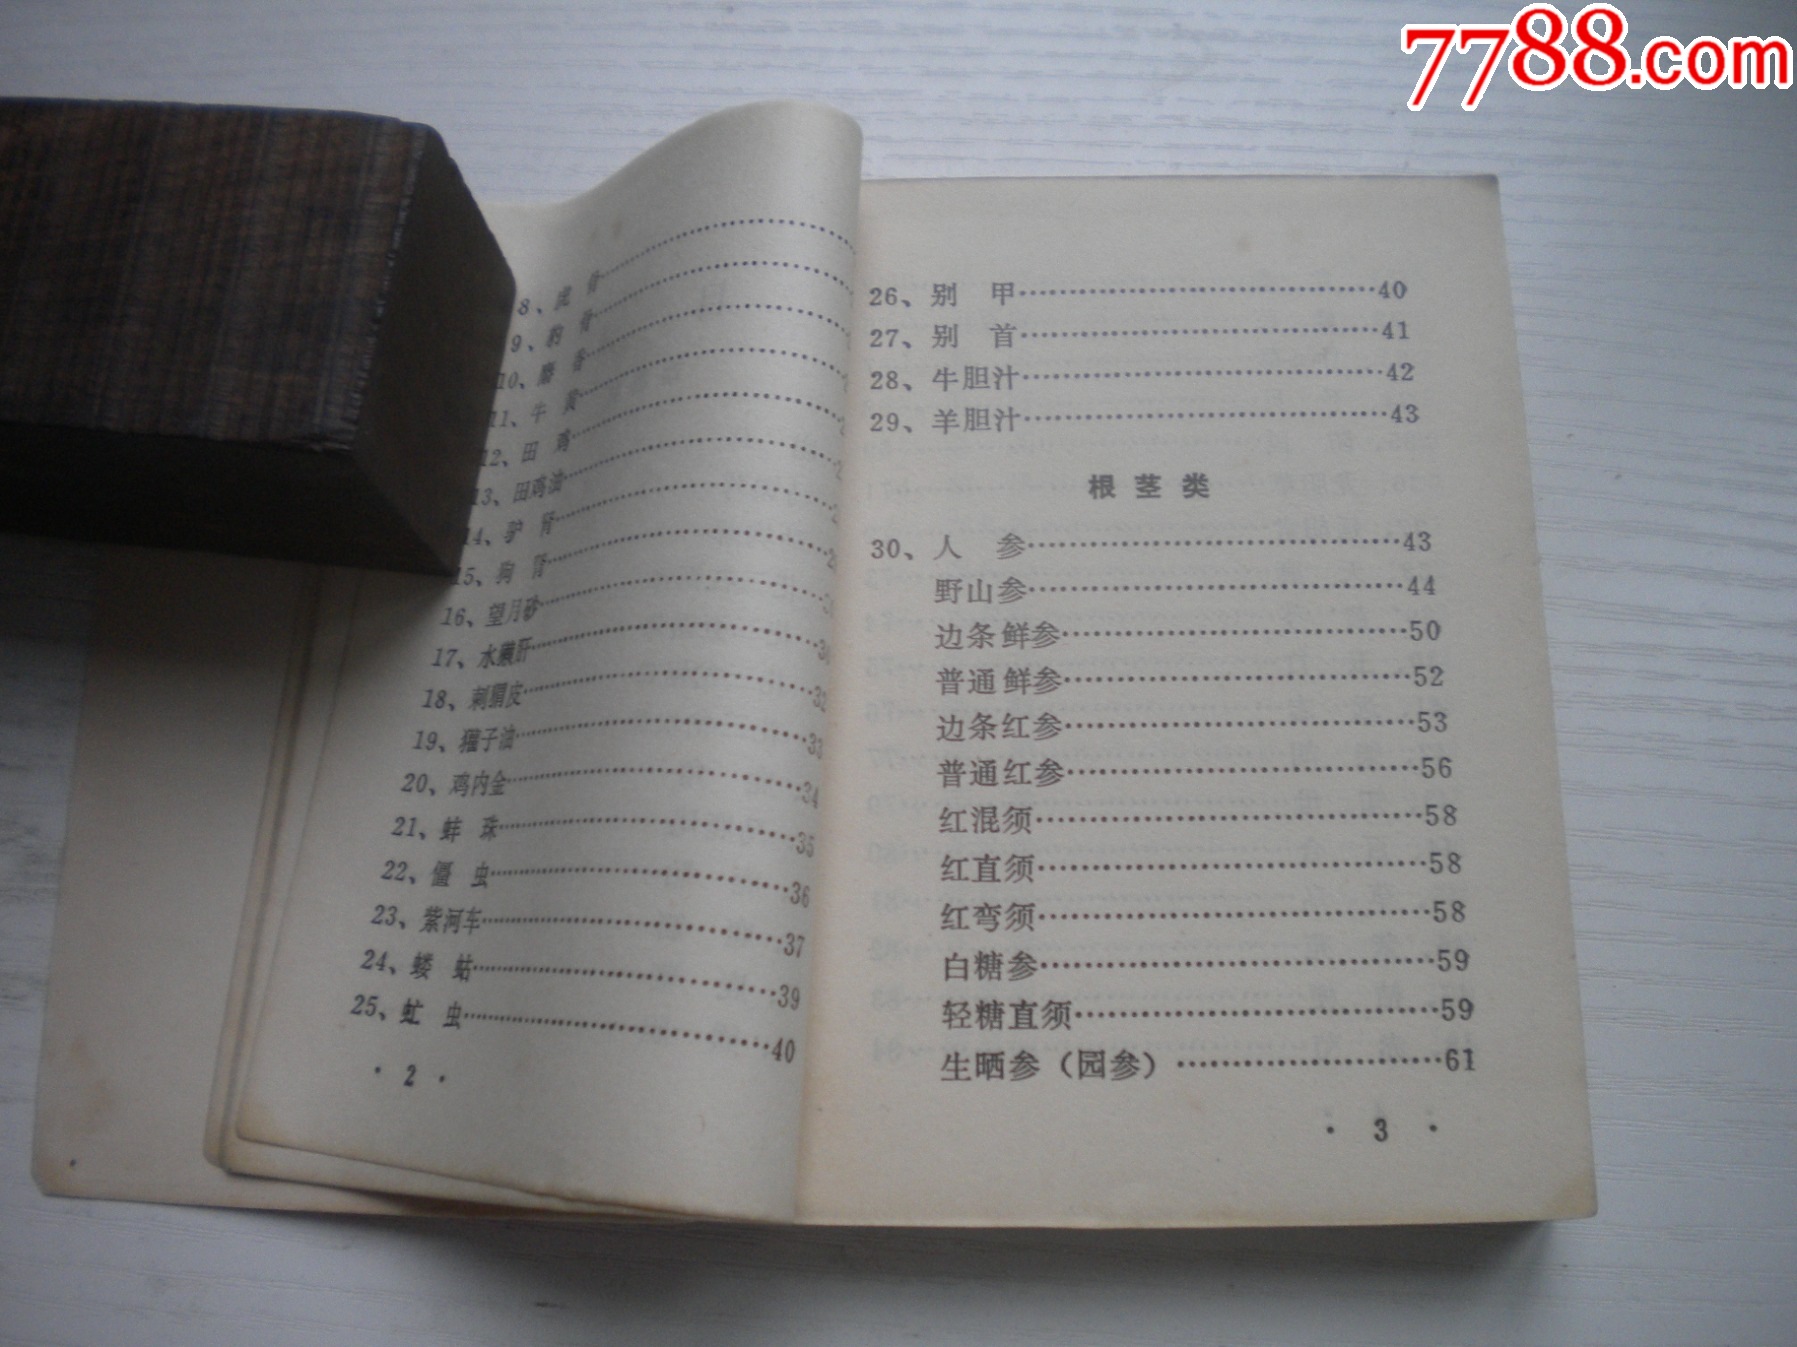 7788.com
8、虎 骨
9、豹 骨
10、麝 香
11、牛 黄
12、田 鸡
13、田鸡油
14、驴 肾
15、狗 肾
16、望月砂
17、水獭肝
18、刺猬皮………32
19、獾子油………33
20、鸡内金………34
21、蚌 珠………35
22、僵 虫………36
23、紫河车………37
24、蝼 蛄………39
25、虻 虫………40
· 2 ·
26、别 甲………40
27、别 首………41
28、牛胆汁………42
29、羊胆汁………43
根 茎 类
30、人 参………43
野山参………44
边条鲜参………50
普通鲜参………52
边条红参………53
普通红参………56
红混须………58
红直须………58
红弯须………58
白糖参………59
轻糖直须………59
生晒参（园参）………61
· 3 ·